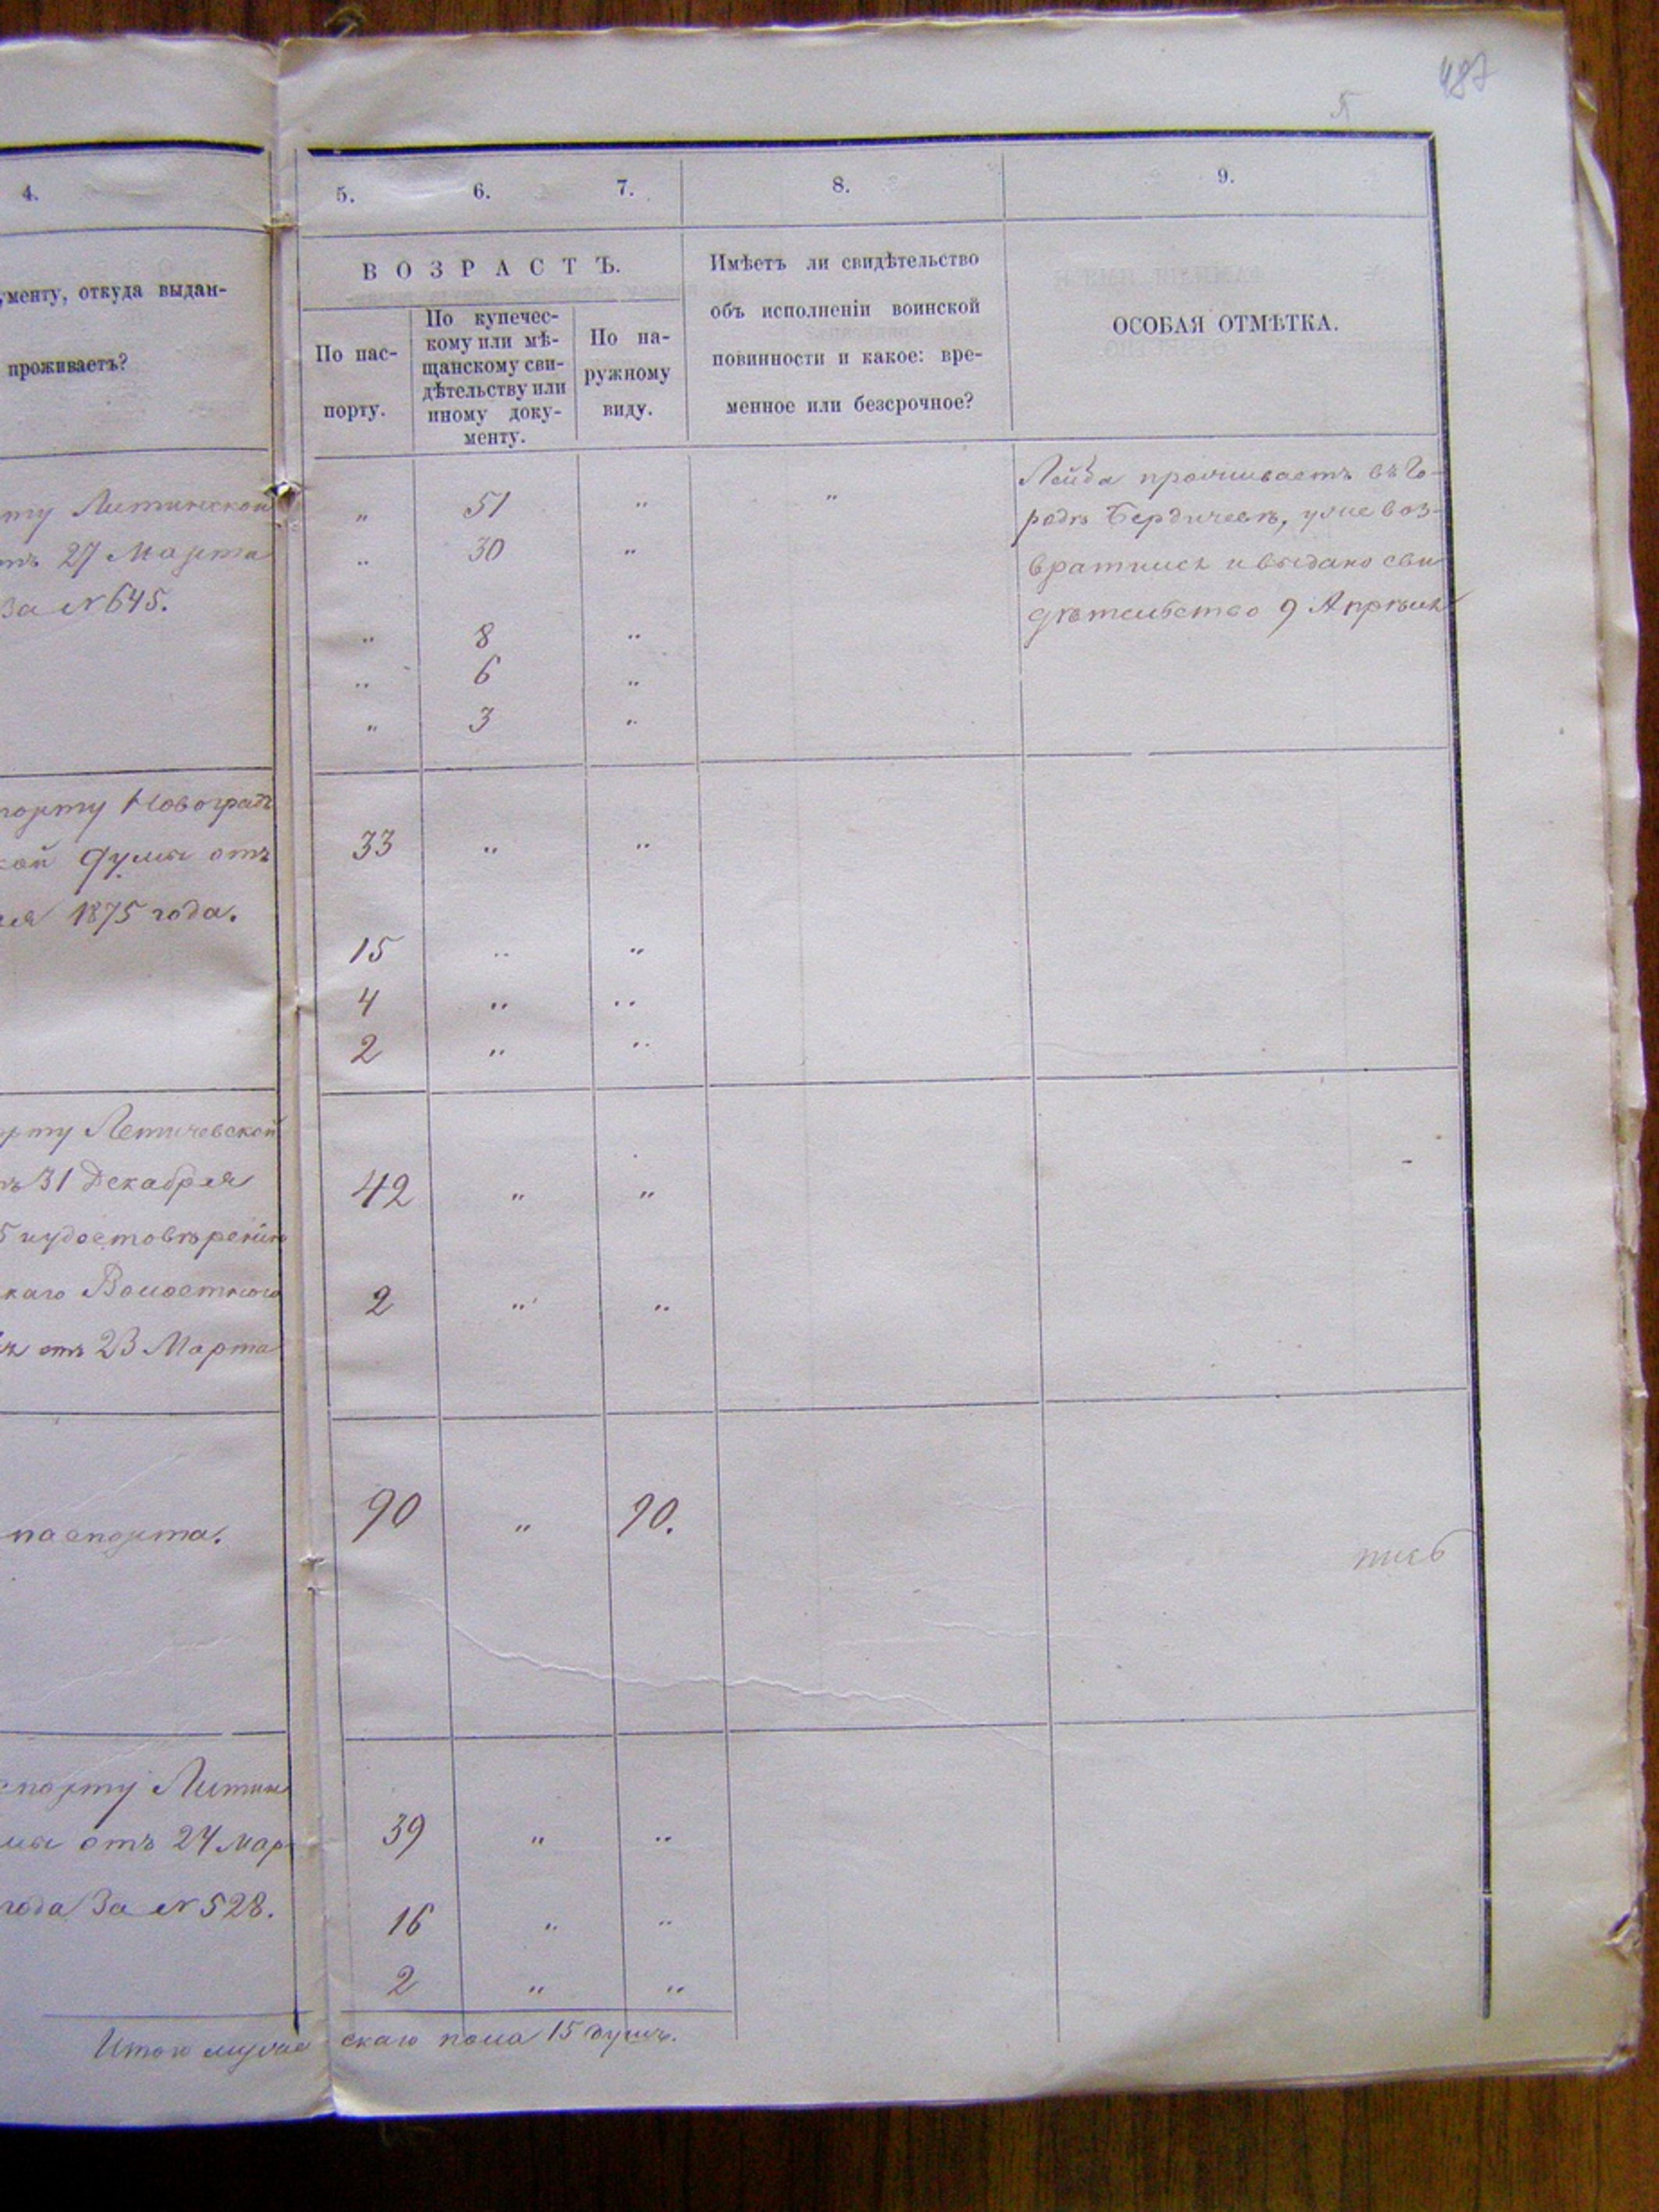 487
4.
5.
6.
7.
8.
9.
ументу, откуда выдан-
проживаетъ?
ВОЗРАСТЪ.
По пас-
порту.
По купечес-
кому или мѣ-
щанскому сви-
дѣтельству или
иному доку-
менту.
По на-
ружному
виду.
Имѣетъ ли свидѣтельство
объ исполненіи воинской
повинности и какое: вре-
менное или безсрочное?
ОСОБАЯ ОТМѢТКА.
рту Литинской
отъ 27 Марта
За №645.
„ 51 „ „
„ 30 „
„ 8 „
„ 6 „
„ 3 „
Лейба проживаетъ въ Го-
родѣ Бердичевѣ, уже воз-
вратился и выдано сви
дѣтельство 9 Апрѣля
порту Новоградъ
кой Думы отъ
1875 года.
33 „ „
15 „ „
4 „ „
2 „ „
орту Летичевской
31 Декабря
5 и удостовѣренію
скаго Волостного
отъ 23 Марта
42 „ „
2 „ „
паспорта.
90 „ 90.
спорту Литин
мы отъ 24 Мар
года За №528.
39 „ „
16 „ „
2 „ „
Итого мужескаго пола 15 душъ.